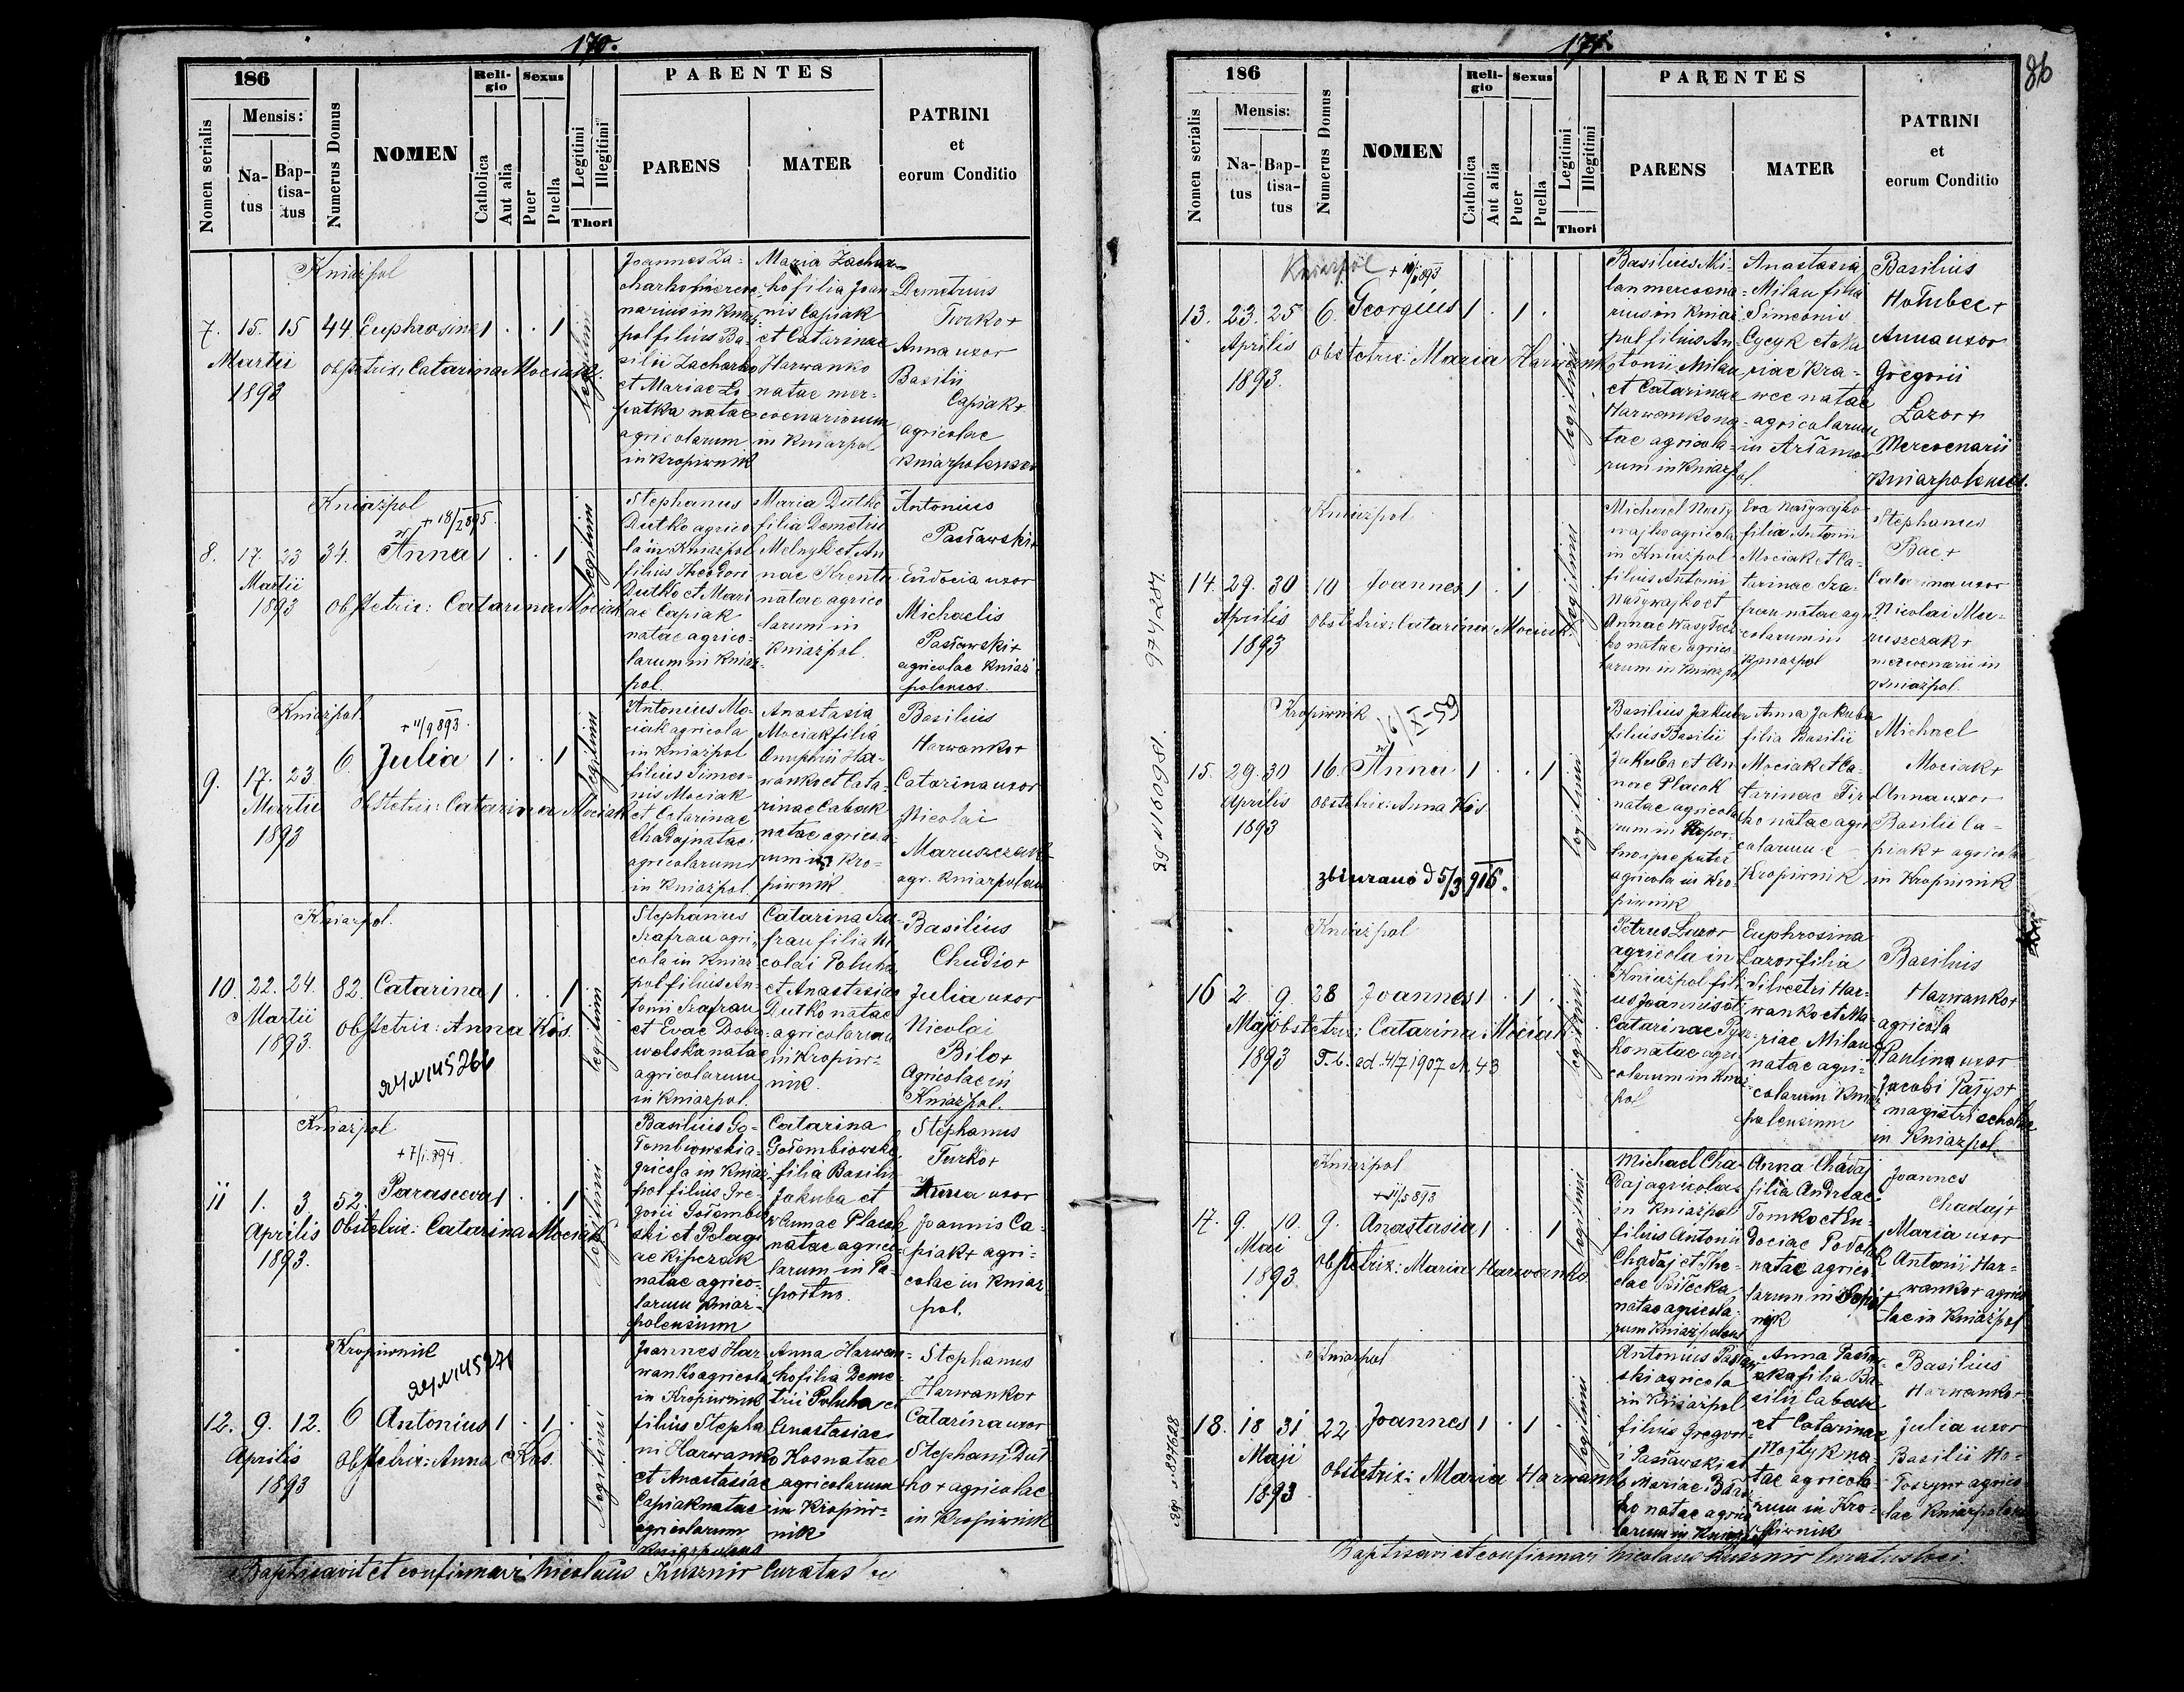 170.
186
Nomen serialis
Mensis:
Natus
Baptisatus
Numerus Domus
NOMEN
Religio
Catholica
Aut alia
Sexus
Puer
Puella
Legitimi
Illegitimi
Thori
PARENTES
PARENS
MATER
PATRINI
et
eorum Conditio
Kniażpol
7. 15. 15 44. Euphrosine 1 . . 1
Martii
1893
obstetrix: Catarina Mociak
legitimi
Joannes Za-
charko mercen-
narius in Kniaż-
pol filius Ba-
silii Zacharko
et Mariae Lo-
patka natae
agricolarum
in Kropiwnik
Maria Zachar-
ko filia Joan-
nis Capiak
et Catarinae
Harwanko
natae mer-
cenariorum
in Kniażpol
Demetrius
Turko +
Anna uxor
Basilii
Capiak +
agricolae
Kniażpolenses
Kniażpol
+ 18/2 895.
8. 17. 23 34. Anna 1 . . 1
Martii
1893
Obstetrix: Catarina Mociak
legitimi
Stephanus
Dutko agrico-
la in Kniażpol
filius Theodori
Dutko et Mari
ae Capiak
natae agrico-
larum in Kniaż-
pol.
Maria Dutko
filia Demetrii
Melnyk et An
nae
natae agrico
larum in
Kniażpol.
Antonius
Pasławski +
Eudocia uxor
Michaelis
Pasławski +
agricolae Kniaż
polenses.
Kniażpol.
+ 11/9 893.
9. 17. 23 6. Julia 1 . . 1
Martii
1893
Obstetrix: Catarina Mociak
legitimi
Antonius Mo-
ciak agricola
in Kniażpol
filius Simeo-
nis Mociak
et Catarinae
Chadaj natae
agricolarum
in Kniażpol
Anastasia
Mociak filia
Onuphrii Har-
wanko et Cata-
rinae Cabak
natae agricola-
rum in Kro-
piwnik
Basilius
Harwanko +
Catarina uxor
Nicolai
Maruszczak
agr. Kniażpolen
Kniażpol.
10. 22. 24. 82. Catarina 1 . . 1
Martii
1893.
Obstetrix: Anna Kos.
legitimi
Stephanus
Szafran agri-
cola in Kniaż
pol filius An-
tonii Szafran
et Evae Dobro-
wolska natae
agricolarum
in Kniażpol.
Catarina Sza-
fran filia Ni
colai Poluha
et Anastasiae
Dutko natae
agricolarum
in Kropiw-
nik.
Basilius
Chudio +
Julia uxor
Nicolai
Bilo +
Agricolae in
Kniażpol.
Kniażpol
+ 7/1. 894.
11 1. 3 52. Parasceva 1 . . 1
Aprilis
1893.
Obstetrix: Catarina Mociak
legitimi
Basilius Go-
łombiowski a-
gricola in Kniaż
pol filius Gre-
gorii Gołombiow
ski et Pelagi
ae Kipczak
natae agrico-
larum Kniaż-
polensium
Catarina
Gołombiowska
filia Basilii
Jakuba et
Annae Placek
natae agrico-
larum in Pa-
portno.
Stephanus
Turko +
Anna uxor
Joannis Ca-
piak + agri-
colae in Kniaż
pol.
Kropiwnik
12. 9. 12. 6 Antonius 1 . 1 .
Aprilis
1893
Obstetrix: Anna Kos.
legitimi
Joannes Har-
wanko agricola
in Kropiwnik
filius Stepha
ni Harwanko
et Anastasiae
Capiak natae
agricolarum
Kniażpolens
Anna Harwan-
ko filia Deme-
trii Poluha et
Anastasiae
Kos natae
agricolarum
in Kropiw-
nik
Stephanus
Harwanko +
Catarina uxor
Stephani Dut
ko + agricolae
in Kropiwnik
Baptisavit et confirmavi Nicolaus Kusznir Curatus
171.
86
186
Nomen serialis
Mensis:
Natus
Baptisatus
Numerus Domus
NOMEN
Religio
Catholica
Aut alia
Sexus
Puer
Puella
Legitimi
Illegitimi
Thori
PARENTES
PARENS
MATER
PATRINI
et
eorum Conditio
Kniażpol
13. 23. 25 6. Georgius 1 . 1 .
Aprilis
1893.
Obstetrix: Maria Harwanko
legitimi
Basilius Mi-
lan mercena-
rius in Kniaż
pol filius An-
tonii Milan
et Catarinae
Harwanko na-
tae agricola-
rum in Kniażpol.
Anastasia
Milan filia
Simeonis
Cycyk et Ma
riae Kra-
wec natae
agricolarum
in Arłamow
Basilius
Hołubec +
Anna uxor
Gregorii
Łazor +
Mercenarii
Kniażpolenses.
Kniażpol
14. 29. 30 10 Joannes 1 . 1 .
Aprilis
1893
Obstetrix: Catarina Mociak
legitimi
Michael Nały-
wajko agricola
in Kniażpol
filius Antonii
Naływajko et
Annae
natae agrico-
larum in Kniażpol
Eva Naływajko
filia Antonii
Mociak et Ca-
tarinae Sza-
fran natae agri
colarum in
Kniażpol
Stephanus
Bac +
Catarina uxor
Nicolai Ma-
ruszczak +
mercenarii in
Kniażpol.
Kropiwnik
16/X-59
15. 29. 30 16. Anna 1 . . 1
Aprilis
1893
Obstetrix: Anna Kos
legitimi
5/3 916.
Basilius Jakuba
filius Basilii
Jakuba et An
nae Placek
natae agricola
rum in Papor-
tno ipse pater
agricola in Kro
piwnik
Anna Jakuba
filia Basilii
Mociak et Ca-
tarinae
natae agri
colarum e
Kropiwnik
Michael
Mociak +
Anna uxor
Basilii Ca-
piak + agricolae
in Kropiwnik
Kniażpol
16 2. 9. 28 Joannes 1 . 1 .
Maji
1893
Obstetrix: Catarina Mociak
T. b. ed. 4/7 1907 N. 43
legitimi
Petrus Lazor
agricola in
Kniażpol fili-
us Joannis et
Catarinae
natae agri
colarum in Kniaż
pol
Euphrosina
Lazor filia
Silvestri Har-
wanko et Ma-
riae Milan
natae agri-
colarum Kniaż
polensium
Basilius
Harwanko +
agricola
Paulina uxor
Jacobi Pałys +
magistri scholae
in Kniażpol.
Kniażpol
+ 11/5 893
17. 9. 10. 9. Anastasia 1 . . 1
Mai
1893.
Obstetrix: Maria Harwanko
legitimi
Michael Cha-
daj agricola
in Kniażpol
filius Antonii
Chadaj et The-
clae Biłecka
natae agricola-
rum Kniażpolens
Anna Chadaj
filia Andreae
Tomko et Eu-
dociae Podolak
natae agrico-
larum in
Joannes
Chadaj +
Maria uxor
Antonii Har-
wanko + agrico
lae in Kniażpol
Kniażpol
18. 18 31 22 Joannes 1 . 1 .
Maji
1893
Obstetrix: Maria Harwanko
legitimi
Antonius Pasław
ski agricola
in Kniażpol
filius Gregori
i Pasławski et
Mariae
natae agrico
larum in Kniażpol
Anna Pasław-
ska filia Ba-
silii Cabak
et Catarinae
na
tae agricola-
rum in Kro-
piwnik
Basilius
Harwanko +
Julia uxor
Basilii Wo-
łoszyn agrico-
lae Kniażpolens
Baptisavi et confirmavi Nicolaus Kusznir Curatus loci.